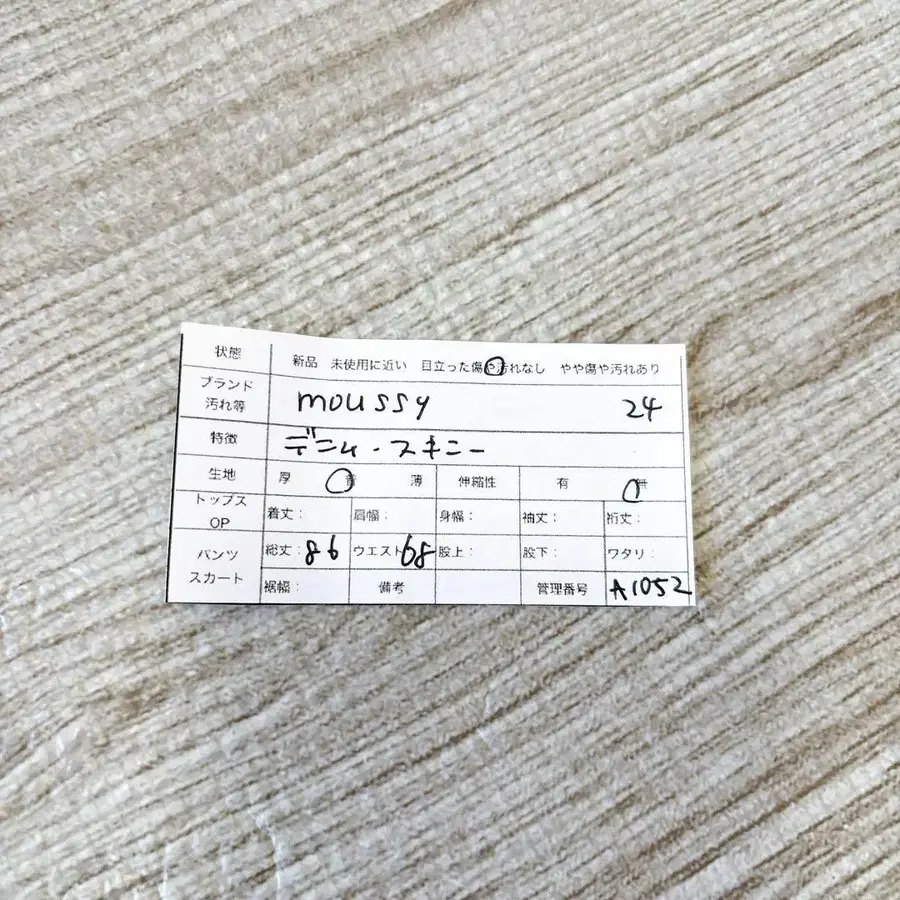 状態 新品 未使用に近い 目立った傷や汚れなし やや傷や汚れあり
ブランド 汚れ等 moussy 24
特徴 デニム・スキニー
生地 厚 普 薄 伸縮性 有 無
トップス OP 着丈: 肩幅: 身幅: 袖丈: 裄丈:
パンツ スカート 総丈:86 ウエスト:68 股上: 股下: ワタリ:
裾幅: 備考 管理番号 A1052